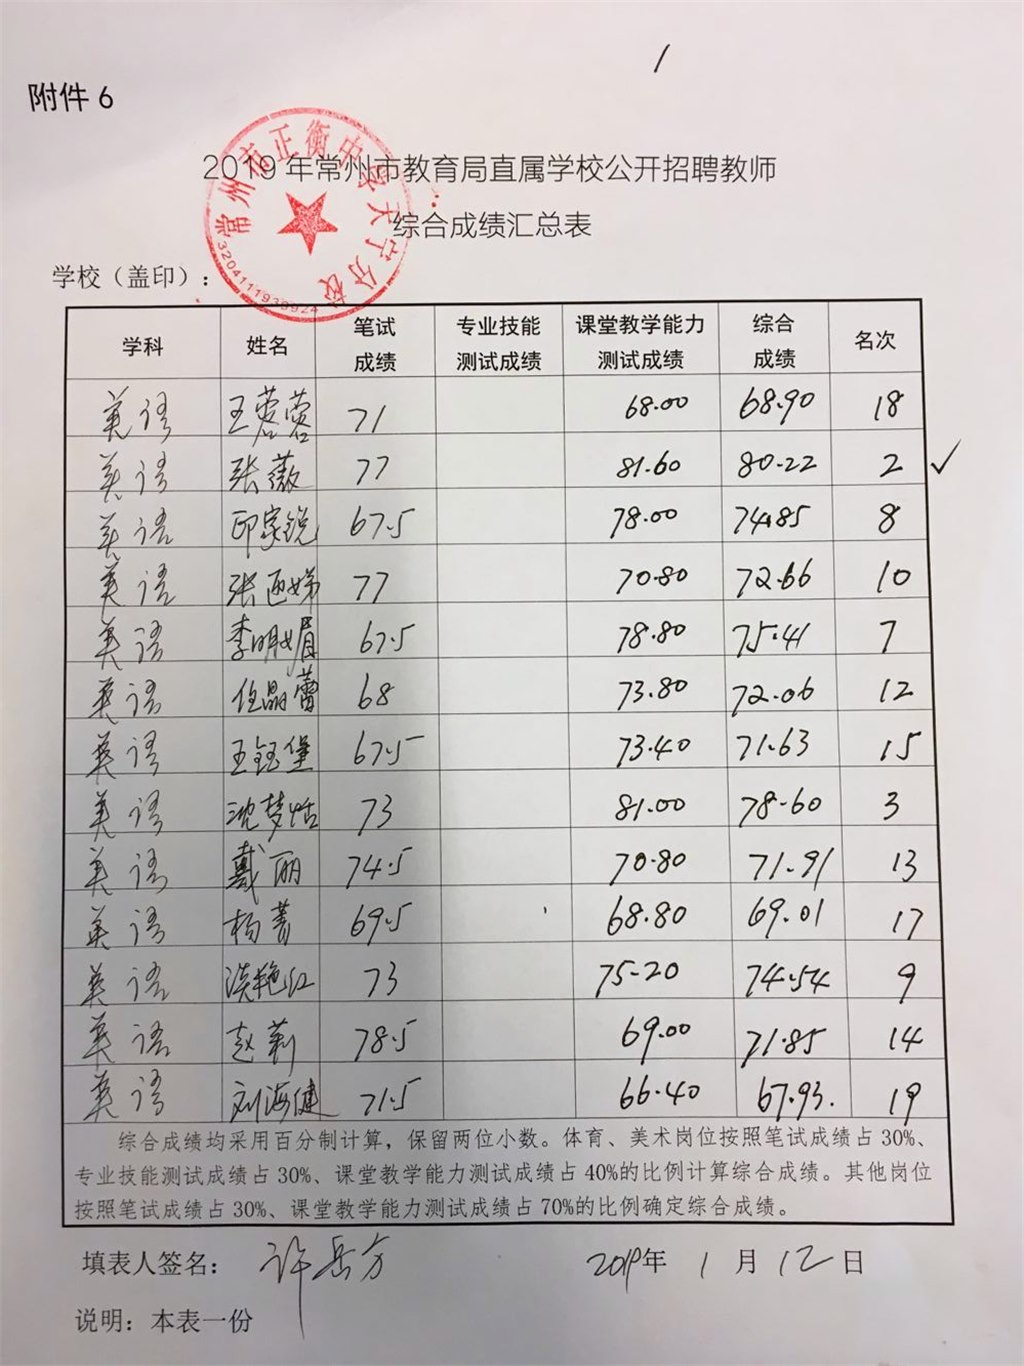 附件 6
2019 年常州市教育局直属学校公开招聘教师
综合成绩汇总表
常州市正衡中学天宁分校
学校（盖印）：
学科 姓名 笔试成绩 专业技能测试成绩 课堂教学能力测试成绩 综合成绩 名次
英语 王蓉蓉 71 68.00 68.90 18
英语 张薇 77 81.60 80.22 2 ✓
英语 印家锐 67.5 78.00 74.85 8
英语 张 77 70.80 72.66 10
英语 李明媚 67.5 78.80 75.41 7
英语 任晶蕾 68 73.80 72.06 12
英语 王钰堡 67.5 73.40 71.63 15
英语 沈梦恬 73 81.00 78.60 3
英语 戴丽 74.5 70.80 71.91 13
英语 杨菁 69.5 68.80 69.01 17
英语 艳红 73 75.20 74.54 9
英语 赵莉 78.5 69.00 71.85 14
英语 刘海健 71.5 66.40 67.93. 19
综合成绩均采用百分制计算，保留两位小数。体育、美术岗位按照笔试成绩占 30%、
专业技能测试成绩占 30%、课堂教学能力测试成绩占 40%的比例计算综合成绩。其他岗位
按照笔试成绩占 30%、课堂教学能力测试成绩占 70%的比例确定综合成绩。
填表人签名： 许岳方 2019年 1 月 12 日
说明：本表一份